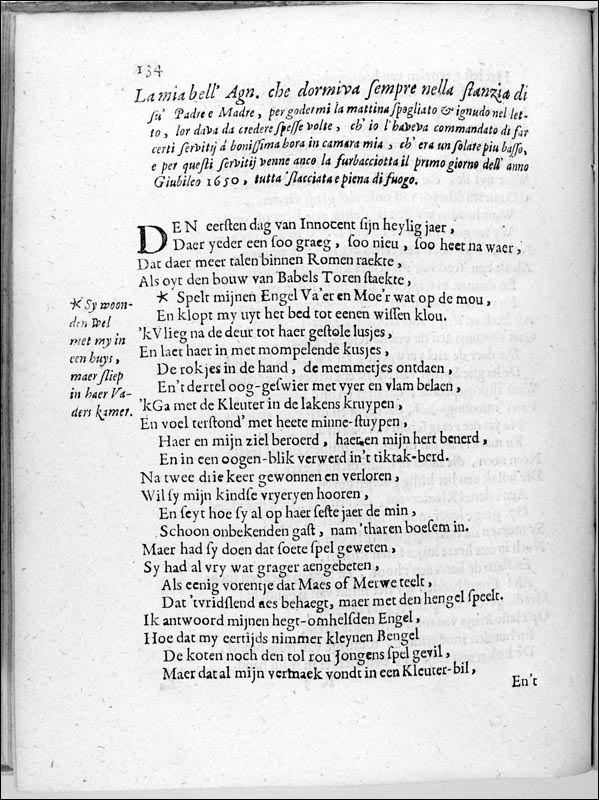 134
La mia bell' Agn. che dormiva sempre nella stanzia di
su' Padre e Madre, per godermi la mattina spogliato & ignudo nel let-
to, lor dava da credere spesse volte, ch' io l'haveva commandato di far
certi servitij à bonissima hora in camara mia, ch' era un solare piu basso,
e per questi servitij venne anco la furbacciotta il primo giorno dell' anno
Giubileo 1650, tutta 'slacciata e piena di fuogo.
DEN eersten dag van Innocent sijn heylig jaer,
Daer yeder een soo graeg, soo nieu, soo heet na waer,
Dat daer meer talen binnen Romen raekte,
Als oyt den bouw van Babels Toren staekte,
* Spelt mijnen Engel Va'er en Moe'r wat op de mou,
En klopt my uyt het bed tot eenen wissen klou.
* Sy woon-
den wel
met my in
een huys,
maer sliep
in haer Va-
ders kamer.
'kVlieg na de deur tot haer gestole lusjes,
En laet haer in met mompelende kusjes,
De rokjes in de hand, de memmetjes ontdaen,
En't dertel oog-geswier met vyer en vlam belaen,
'kGa met de Kleuter in de lakens kruypen,
En voel terstond' met heete minne-stuypen,
Haer en mijn ziel beroerd, haer en mijn hert benerd,
En in een oogen-blik verwerd in't tiktak-berd.
Na twee drie keer gewonnen en verloren,
Wil sy mijn kindse vryeryen hooren,
En seyt hoe sy al op haer seste jaer de min,
Schoon onbekenden gast, nam 'tharen boesem in.
Maer had sy doen dat soete spel geweten,
Sy had al vry wat grager aengebeten,
Als eenig vorentje dat Maes of Merwe teelt,
Dat 'tvridslend aes behaegt, maer met den hengel speelt.
Ik antwoord mijnen hegt-omhelsden Engel,
Hoe dat my eertijds nimmer kleynen Bengel
De koten noch den tol rou Jongens spel gevil,
Maer dat al mijn vermaek vondt in een Kleuter-bil,
En't